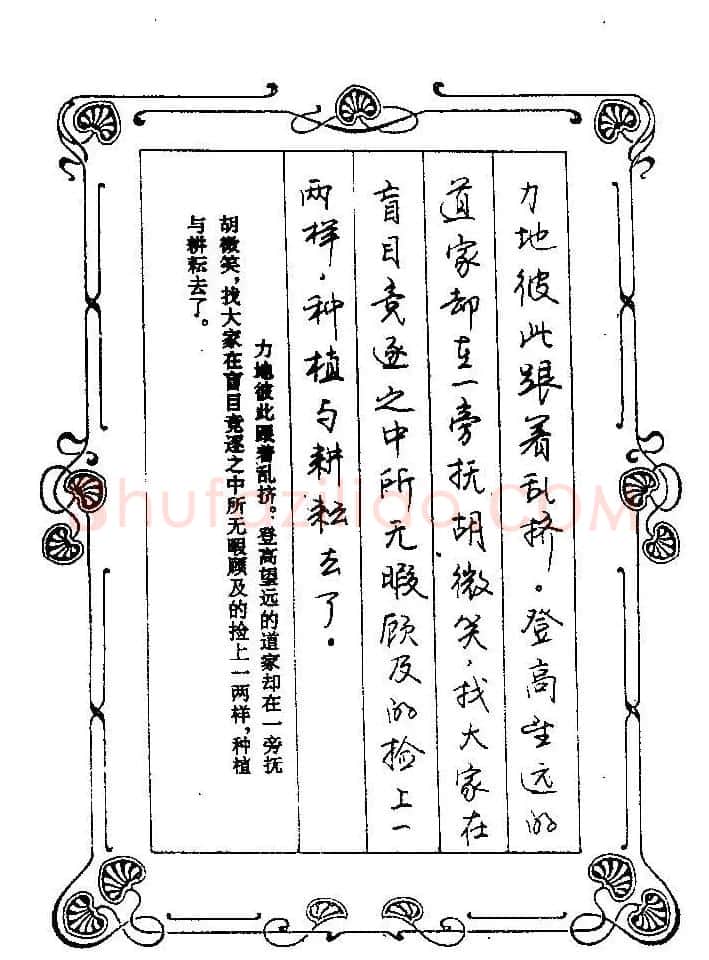 力地彼此跟着乱挤。登高望远的
道家却在一旁抚胡微笑，找大家在
盲目竞逐之中所无暇顾及的捡上一
两样，种植与耕耘去了。
力地彼此跟着乱挤。登高望远的道家却在一旁抚
胡微笑，找大家在盲目竞逐之中所无暇顾及的捡上一两样，种植
与耕耘去了。
ShufaZiliao.COM